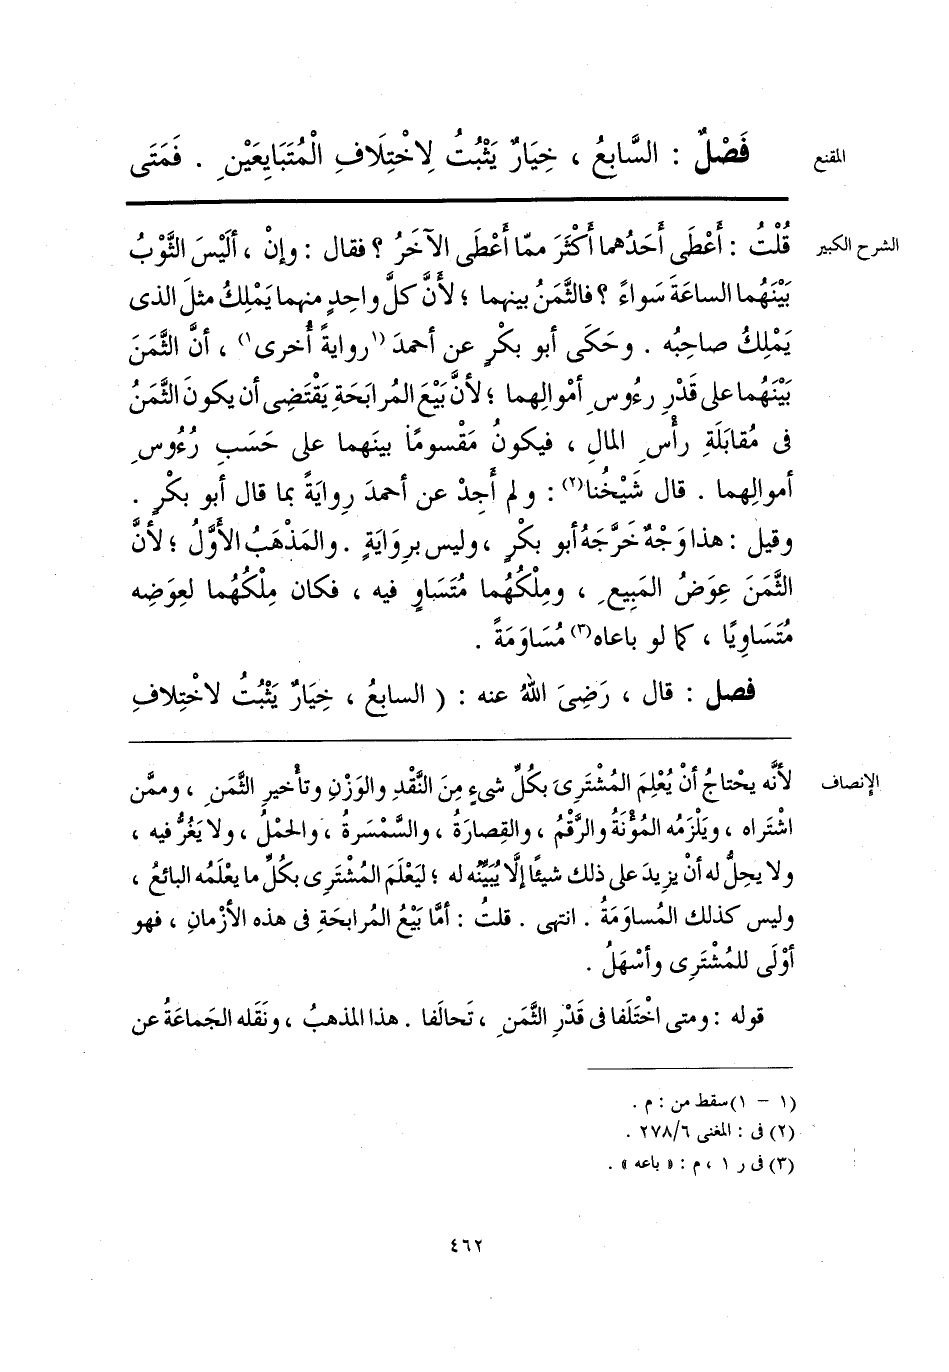 المقنع
فَصْلٌ : السَّابِعُ ، خِيَارٌ يَثْبُتُ لِاخْتِلَافِ الْمُتَبَايِعَيْنِ . فَمَتَى
الشرح الكبير
قُلْتُ : أَعْطَى أَحَدُهما أَكْثَرَ ممّا أَعْطَى الآخَرُ ؟ فقال : وإنْ ، أليْسَ الثَّوْبُ
بَيْنَهُما الساعَةَ سَواءً ؟ فالثَّمَنُ بينهما ؛ لأنَّ كلَّ واحِدٍ منهما يَمْلِكُ مثلَ الذى
يَمْلِكُ صاحِبُه . وحَكَى أبو بكْرٍ عن أحمدَ (١روايةً أُخرى١) ، أنَّ الثَّمَنَ
بَيْنَهُما على قَدْرِ رءُوسِ أمْوالِهما ؛ لأنَّ بَيْعَ المُرابَحَةِ يَقْتَضِى أن يكونَ الثَّمَنُ
فى مُقابَلَةِ رأْسِ المالِ ، فيكونُ مَقْسومًا بينَهما على حَسَبِ رُءُوسِ
أموالِهما . قال شَيْخُنا(٢) : ولم أَجِدْ عن أحمدَ رِوايَةً بما قال أبو بكْرٍ .
وقيل : هذا وَجْهٌ خَرَّجَهُ أبو بكْرٍ ، وليس برِوَايَةٍ . والمَذْهَبُ الأَوَّلُ ؛ لأنَّ
الثَّمَنَ عِوَضُ المَبِيعِ ، ومِلْكُهُما مُتَسَاوٍ فيه ، فكان مِلْكُهُما لعِوَضِه
مُتَسَاوِيًا ، كما لو باعاه(٣) مُسَاوَمَةً .
فصل : قال ، رَضِىَ اللهُ عنه : ( السابعُ ، خِيَارٌ يَثْبُتُ لاخْتِلافِ
الإنصاف
لأنَّه يحْتاجُ أنْ يُعْلِمَ المُشْتَرِىَ بكُلِّ شىءٍ مِنَ النَّقْدِ والوَزْنِ وتأْخيرِ الثَّمَنِ ، وممَّن
اشْتَراه ، ويَلْزَمُه المُؤْنَةُ والرَّقْمُ ، والقِصارَةُ ، والسَّمْسَرةُ ، والحَمْلُ ، ولا يَغُرُّ فيه ،
ولا يحِلُّ له أنْ يزيدَ على ذلك شيئًا إلَّا يُبَيِّنُه له ؛ ليَعْلَمَ المُشْتَرِى بكُلِّ ما يعْلَمُه البائعُ ،
وليس كذلك المُساوَمَةُ . انتهى . قلتُ : أمَّا بَيْعُ المُرابحَةِ فى هذه الأزْمانِ ، فهو
أوْلَى للمُشْتَرِى وأسْهَلُ .
قوله : ومتى اخْتَلَفا فى قَدْرِ الثَّمَنِ ، تَحالَفا . هذا المذهبُ ، ونَقَله الجَماعَةُ عن
(١ - ١) سقط من : م .
(٢) فى : المغنى ٢٧٨/٦ .
(٣) فى ر ١ ، م : « باعه » .
٤٦٢